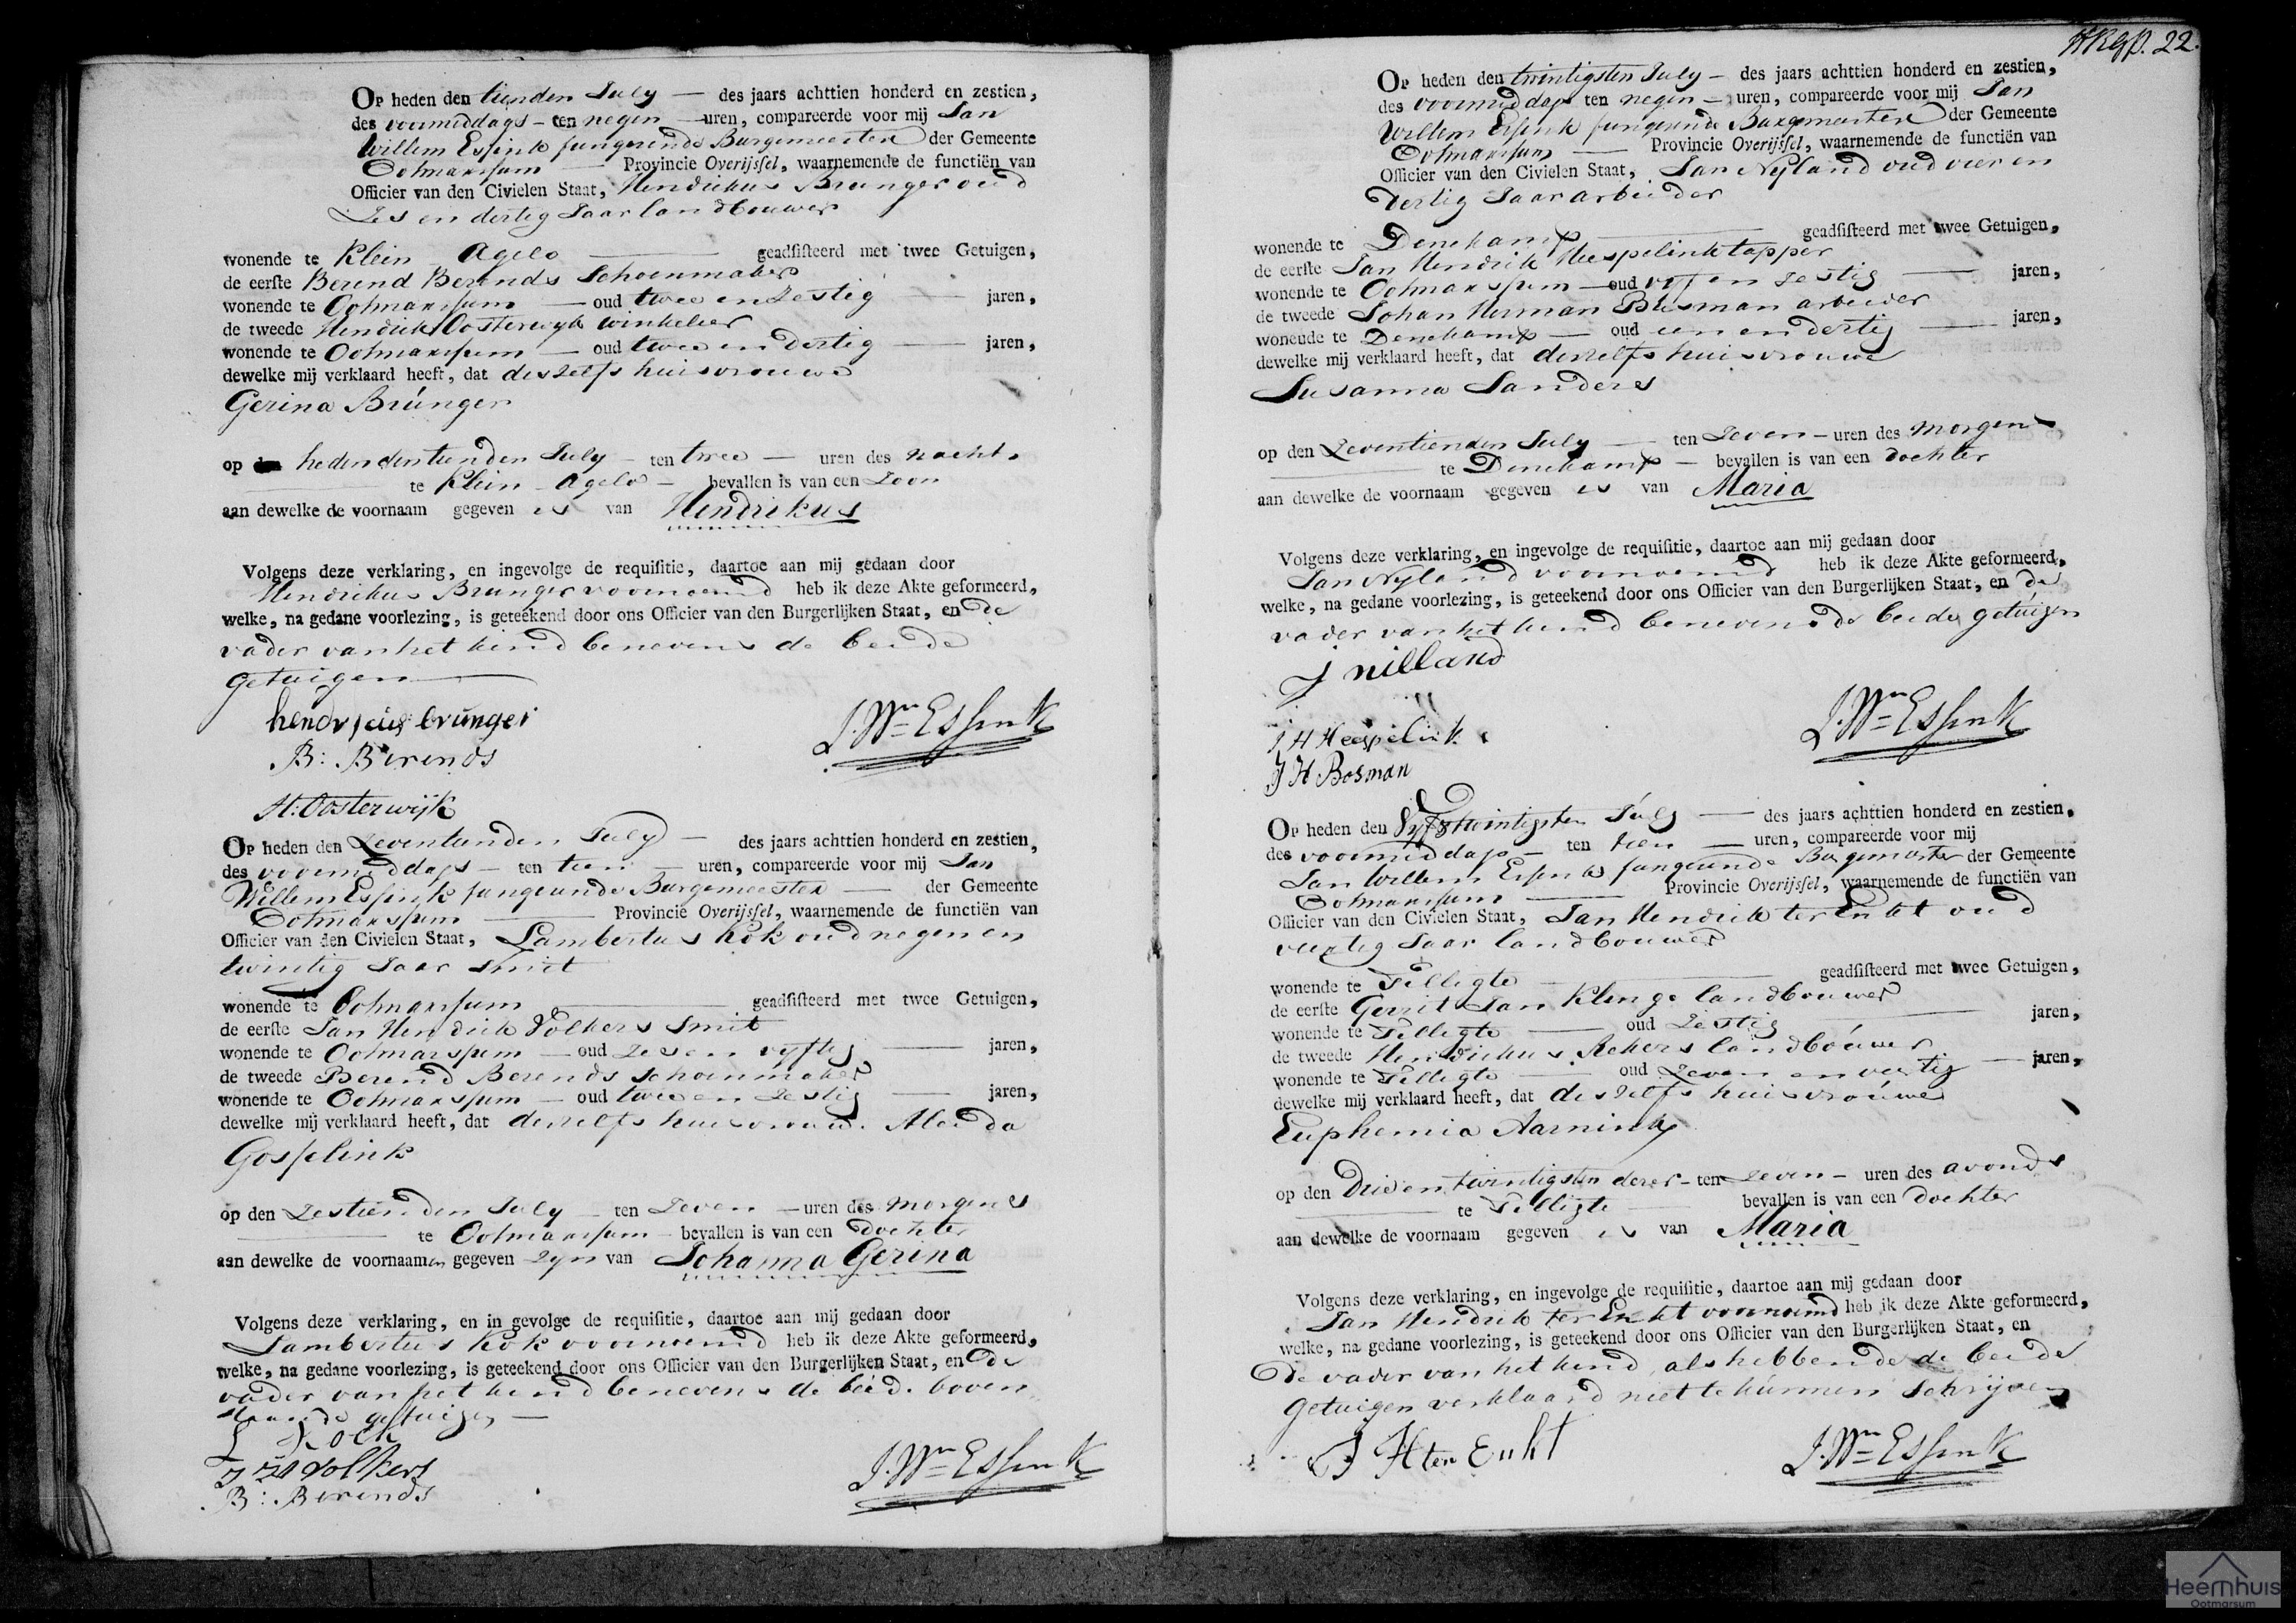 Op heden den tienden July — des jaars achttien honderd en zestien,
des voormiddags - ten negen — uren, compareerde voor mij Jan
Willem Essink fungerende Burgemeester der Gemeente
Ootmarssum — Provincie Overijssel, waarnemende de functiën van
Officier van den Civielen Staat, Hendrikus Brunger oud
Zes en dertig Jaar landbouwer
wonende te Klein Agelo — geadsisteerd met twee Getuigen,
de eerste Berend Berends Schoenmaker
wonende te Ootmarssum — oud twee en Zestig — jaren,
de tweede Hendrik Oosterwyk winkelier
wonende te Ootmarssum — oud twee en dertig — jaren,
dewelke mij verklaard heeft, dat deszelfs huisvrouwe
Gerina Brúnger
op heden den tienden July - ten twee — uren des nachts
te Klein Agelo — bevallen is van een Zoon
aan dewelke de voornaam gegeven is van Hendrikus
Volgens deze verklaring, en ingevolge de requisitie, daartoe aan mij gedaan door
Hendrikus Brunger voornoemd heb ik deze Akte geformeerd,
welke, na gedane voorlezing, is geteekend door ons Officier van den Burgerlijken Staat, en de
vader van het kind benevens de beide
getuigen —
hendricus brúnger
J. Wm Essink
B: Berends
H: Oosterwijk
Op heden den Zeventienden July — des jaars achttien honderd en zestien,
des voormiddags — ten tien — uren, compareerde voor mij Jan
Willem Essink fungerende Burgemeester — der Gemeente
Ootmarssum — Provincie Overijssel, waarnemende de functiën van
Officier van den Civielen Staat, Lambertus Kok oud negen en
twintig Jaar Smit
wonende te Ootmarssum — geadsisteerd met twee Getuigen,
de eerste Jan Hendrik Volkers Smit
wonende te Ootmarssum — oud Zes en vyftig — jaren,
de tweede Berend Berends Schoenmaker
wonende te Ootmarssum — oud twee en Zestig — jaren,
dewelke mij verklaard heeft, dat deszelfs huisvrouwe Alenda
Gosselink
op den Zestienden July — ten Zeven — uren des morgens
te Ootmarssum — bevallen is van een Dochter
aan dewelke de voornaamen gegeven zyn van Johanna Gerina
Volgens deze verklaring, en in gevolge de requisitie, daartoe aan mij gedaan door
Lambertus Kok voornoemd heb ik deze Akte geformeerd,
welke, na gedane voorlezing, is geteekend door ons Officier van den Burgerlijken Staat, en de
vader van het kind benevens de beide boven
staande getuigen —
L Kock
J H Volkers
B: Berends
J. Wm Essink
22.
Op heden den twintigsten July — des jaars achttien honderd en zestien,
des voormiddags ten negen — uren, compareerde voor mij Jan
Willem Essink fungerende Burgemeester der Gemeente
Ootmarssum — Provincie Overijssel, waarnemende de functiën van
Officier van den Civielen Staat, Jan Nyland oud vier en
dertig Jaar arbeider
wonende te Denekamp — geadsisteerd met twee Getuigen,
de eerste Jan Hendrik Heespelink tapper
wonende te Ootmarssum — oud vyf en Zestig — jaren,
de tweede Johan Herman Bosman arbeider
wonende te Denekamp — oud een en dertig — jaren,
dewelke mij verklaard heeft, dat deszelfs huisvrouwe
Susanna Sanders
op den Zeventienden July — ten Zeven — uren des morgens
te Denekamp — bevallen is van een dochter
aan dewelke de voornaam gegeven is van Maria
Volgens deze verklaring, en ingevolge de requisitie, daartoe aan mij gedaan door
Jan Nyland voornoemd heb ik deze Akte geformeerd,
welke, na gedane voorlezing, is geteekend door ons Officier van den Burgerlijken Staat, en de
vader van het kind benevens de beide getúigen
J nilland
J H Heespelink
J. Wm Essink
J H Bosman
Op heden den Vyfstwintigsten Júly — des jaars achttien honderd en zestien,
des voormiddags — ten tien — uren, compareerde voor mij
Jan Willem Essink fungerende Burgemeester der Gemeente
Ootmarssum — Provincie Overijssel, waarnemende de functiën van
Officier van den Civielen Staat, Jan Hendrik ter Enkt oud
veertig Jaar landbouwer
wonende te Tilligte — geadsisteerd met twee Getuigen,
de eerste Gerrit Jan Klinge landbouwer
wonende te Tilligte — oud Zestig — jaren,
de tweede Hendrikus Rekers landbóuwer
wonende te Tilligte — oud Zeven en veertig — jaren,
dewelke mij verklaard heeft, dat deszelfs huisvróuwe
Euphemia Aarnink
op den Drieentwintigsten dezer - ten Zeven — uren des avonds
te Tilligte — bevallen is van een dochter
aan dewelke de voornaam gegeven is van Maria
Volgens deze verklaring, en ingevolge de requisitie, daartoe aan mij gedaan door
Jan Hendrik ter Enkt voornoemd heb ik deze Akte geformeerd,
welke, na gedane voorlezing, is geteekend door ons Officier van den Burgerlijken Staat, en
de vader van het kind, als hebbende de beide
Getuigen verklaard niet te kúnnen Schrijven
J H ter Enkt
J. Wm Essink
Heemhuis
Ootmarsum